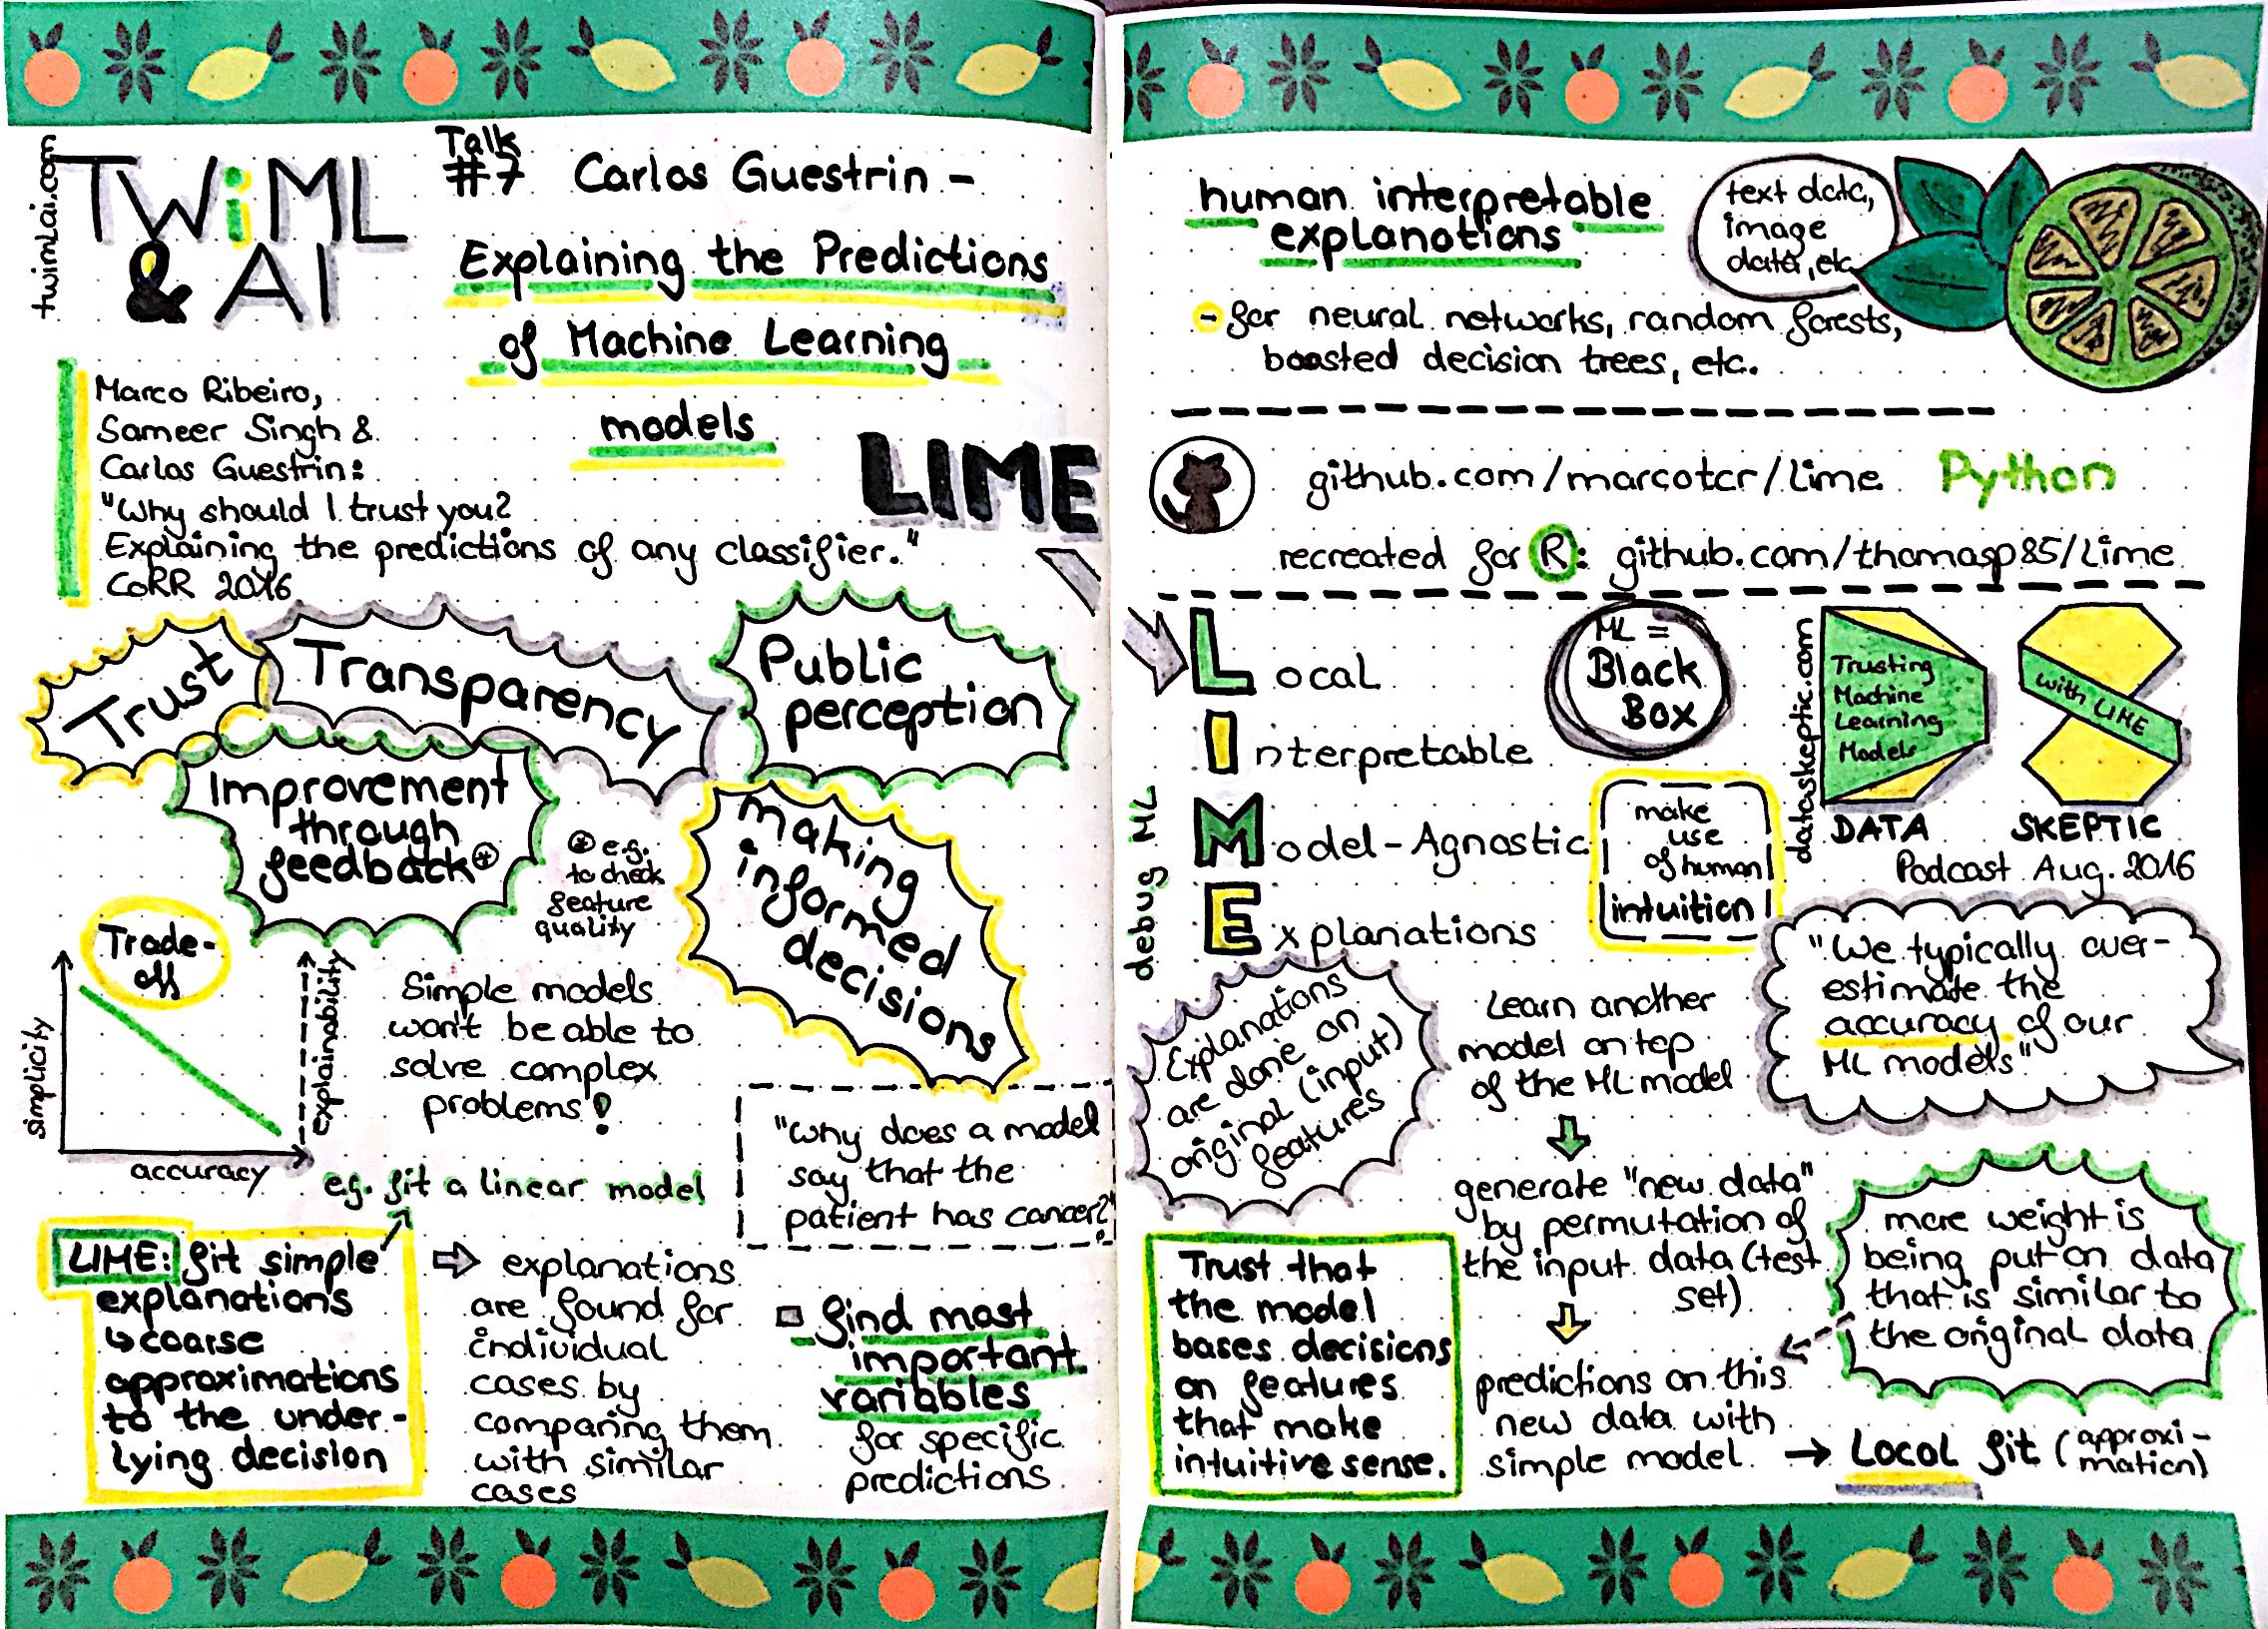 twimlai.com
TWiML
& AI
Talk
#7 Carlos Guestrin -
Explaining the Predictions
of Machine Learning
models
LIME
Marco Ribeiro,
Sameer Singh &
Carlos Guestrin:
"Why should I trust you?
Explaining the predictions of any classifier."
CoRR 2016
Trust
Transparency
Public
perception
Improvement
through
feedback*
* e.g.
to check
feature
quality
making
informed
decisions
Trade-
off
simplicity
accuracy
explainability
Simple models
won't be able to
solve complex
problems!
e.g. fit a linear model
"Why does a model
say that the
patient has cancer?"
LIME: fit simple
explanations
↳ coarse
approximations
to the under-
lying decision
⇨ explanations
are found for
individual
cases by
comparing them
with similar
cases
find most
important
variables
for specific
predictions
human interpretable
explanations
text data,
image
data, etc
- for neural networks, random forests,
boosted decision trees, etc.
github.com/marcotcr/lime Python
recreated for R: github.com/thomasp85/lime
Local
Interpretable
Model-Agnostic
Explanations
debug ML
ML =
Black
Box
make
use
of human
intuition!
dataskeptic.com
Trusting
Machine
Learning
Models
with LIME
DATA SKEPTIC
Podcast Aug. 2016
"We typically over-
estimate the
accuracy of our
ML models"
Explanations
are done on
original (input)
features
Learn another
model on top
of the ML model
generate "new data"
by permutation of
the input data (test
set)
predictions on this
new data with
simple model. → Local fit (approxi-
mation)
more weight is
being put on data
that is similar to
the original data
Trust that
the model
bases decisions
on features
that make
intuitive sense.